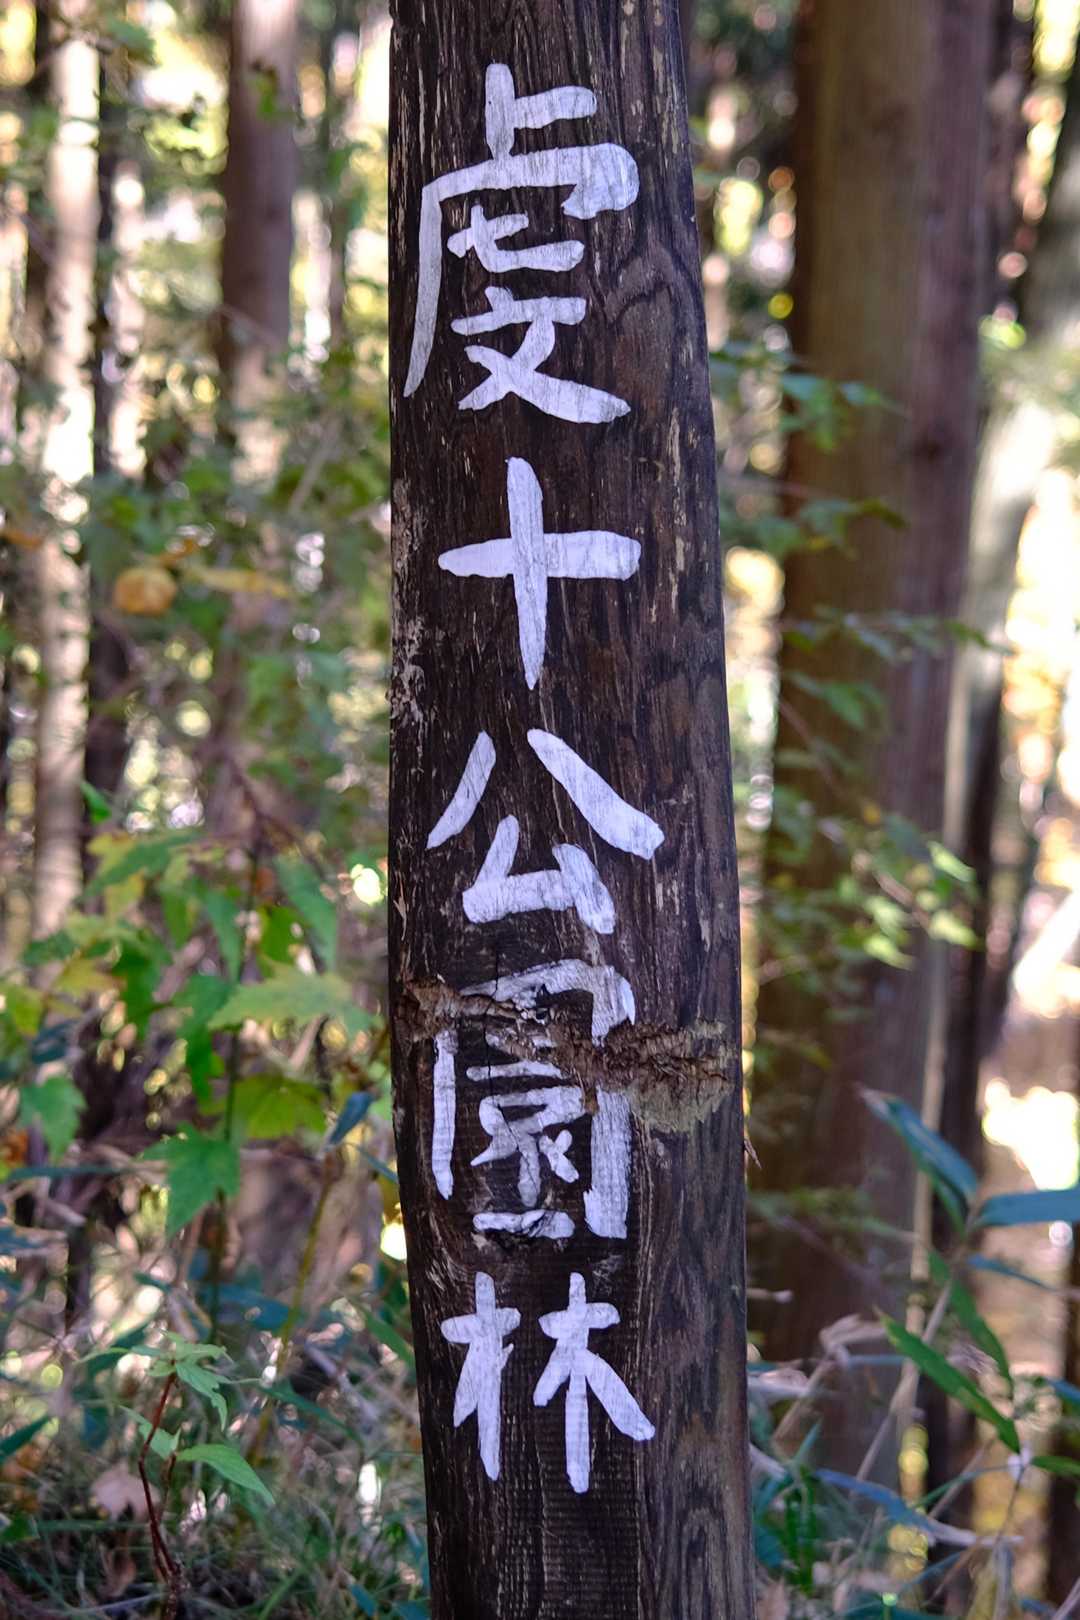 虔十公園林